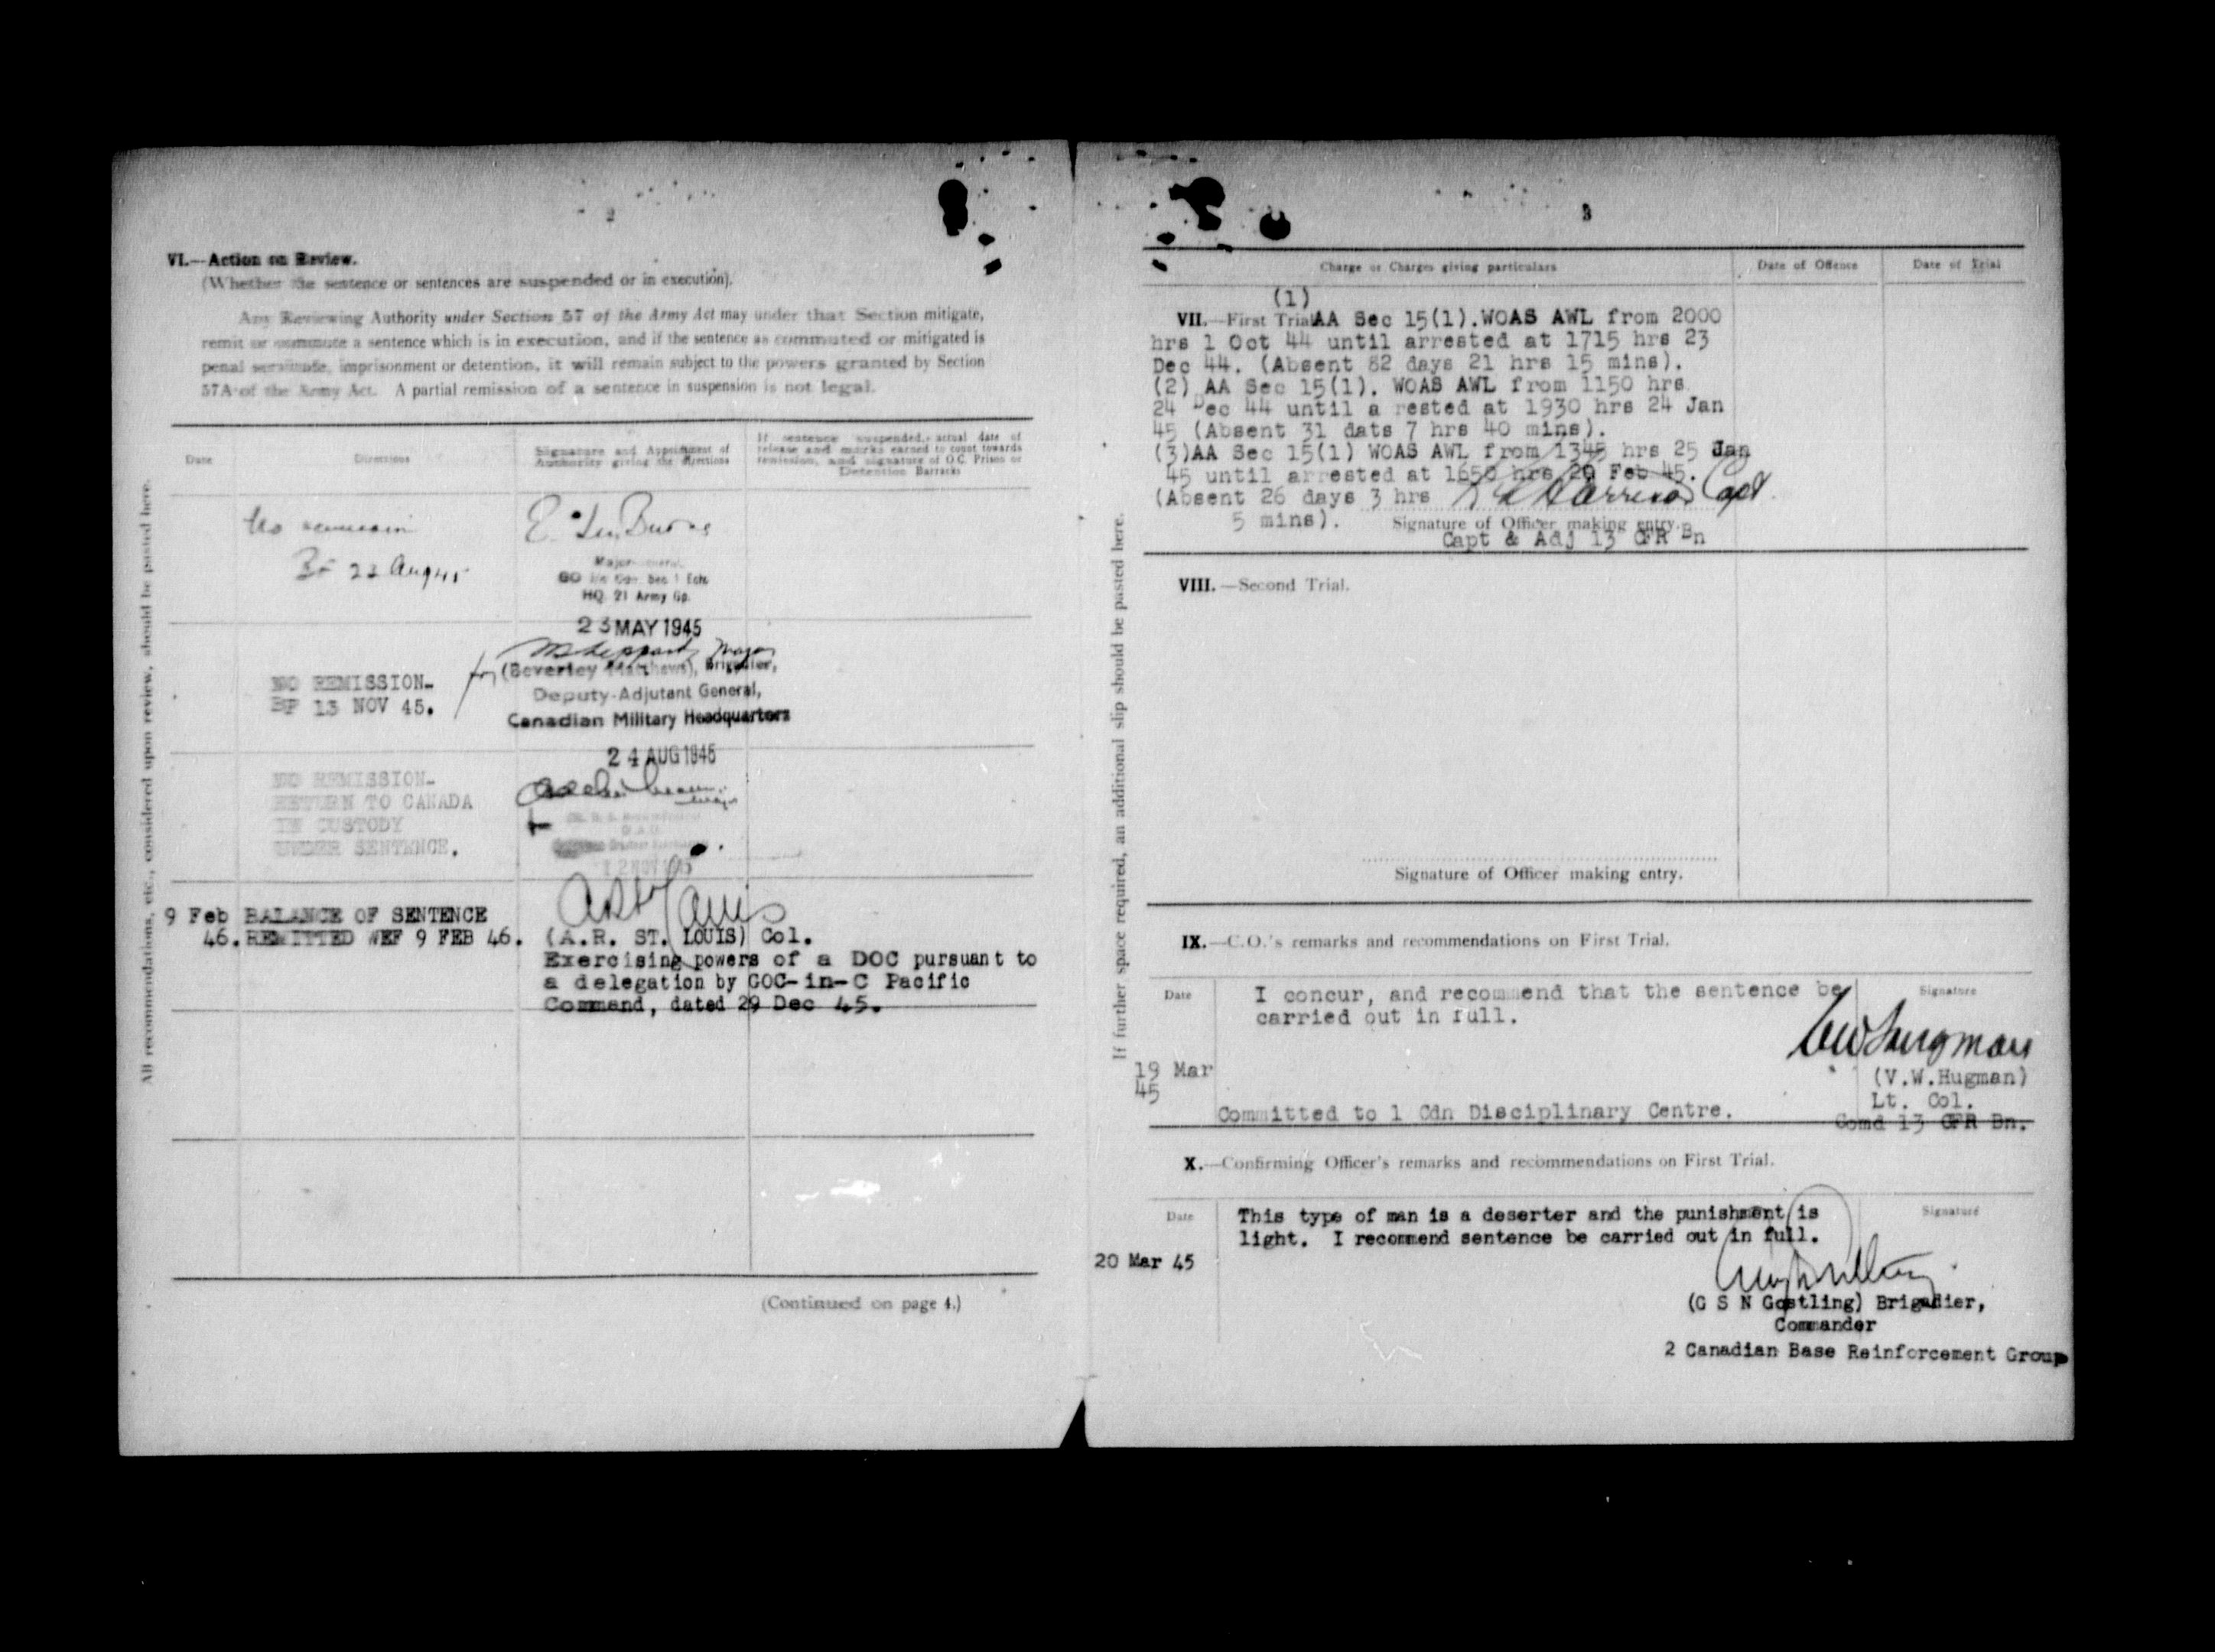 2
VI.—Action on Review.
(Whether the sentence or sentences are suspended or in execution).
Any Reviewing Authority under Section 57 of the Army Act may under that Section mitigate,
remit or commute a sentence which is in execution, and if the sentence as commuted or mitigated is
penal servitude, imprisonment or detention, it will remain subject to the powers granted by Section
57A of the Army Act. A partial remission of a sentence in suspension is not legal.
Date
Directions
Signature and Appointment of
Authority giving the directions
If sentence suspended, actual date of
release and marks earned to count towards
remission, and signature of O.C. Prison or
Detention Barracks
No remission
BF 23 Aug 45
Major-General,
HQ. 21 Army Gp.
23 MAY 1945
NO REMISSION-
BF 13 NOV 45.
for
Major
(Beverley Matthews), Brigadier,
Deputy-Adjutant General,
Canadian Military Headquarters
24 AUG 1945
NO REMISSION-
RETURN TO CANADA
IN CUSTODY
UNDER SENTENCE.
12 NOV 1945
9 Feb BALANCE OF SENTENCE
46. REMITTED WEF 9 FEB 46.
(A.R. ST. LOUIS) Col.
Exercising powers of a DOC pursuant to
a delegation by GOC-in-C Pacific
Command, dated 29 Dec 45.
(Continued on page 4.)
All recommendations, etc., considered upon review, should be pasted here.
3
Charge or Charges giving particulars
Date of Offence
Date of Trial
(1)
VII.—First Trial AA Sec 15(1).WOAS AWL from 2000
hrs 1 Oct 44 until arrested at 1715 hrs 23
Dec 44. (Absent 82 days 21 hrs 15 mins).
(2) AA Sec 15(1). WOAS AWL from 1150 hrs
24 Dec 44 until a rested at 1930 hrs 24 Jan
45 (Absent 31 dats 7 hrs 40 mins).
(3)AA Sec 15(1) WOAS AWL from 1345 hrs 25 Jan
45 until arrested at 1650 hrs 20 Feb 45.
(Absent 26 days 3 hrs
Harrison Capt
5 mins).
Signature of Officer making entry.
Capt & Adj 13 CFR Bn
VIII.—Second Trial.
Signature of Officer making entry.
If further space required, an additional slip should be pasted here.
IX.—C.O.'s remarks and recommendations on First Trial.
Date
Signature
I concur, and recommend that the sentence be
carried out in full.
VW Hugman
19 Mar
45
(V.W.Hugman)
Lt. Col.
Comd 13 CFR Bn.
Committed to 1 Cdn Disciplinary Centre.
X.—Confirming Officer's remarks and recommendations on First Trial.
Date
Signature
This type of man is a deserter and the punishment is
light. I recommend sentence be carried out in full.
20 Mar 45
(G S N Gostling) Brigadier,
Commander
2 Canadian Base Reinforcement Group